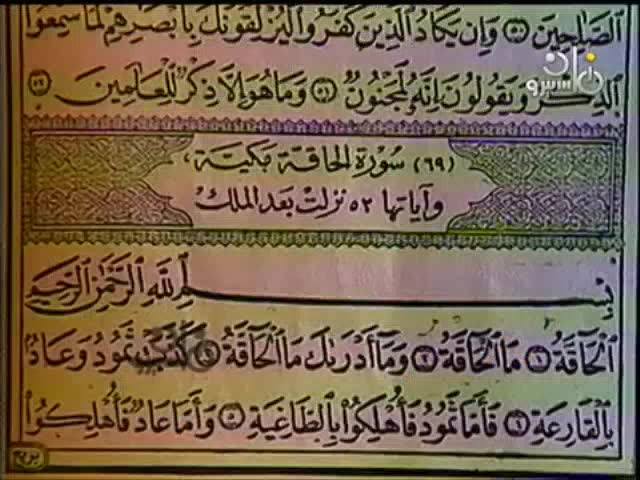 الصَّالِحِينَ ۝٥٠ وَإِن يَكَادُ ٱلَّذِينَ كَفَرُوا۟ لَيُزْلِقُونَكَ بِأَبْصَٰرِهِمْ لَمَّا سَمِعُوا۟
ٱلذِّكْرَ وَيَقُولُونَ إِنَّهُۥ لَمَجْنُونٌ ۝٥١ وَمَا هُوَ إِلَّا ذِكْرٌ لِّلْعَٰلَمِينَ ۝٥٢
(٦٩) سورة الحاقة مكية،
وآياتها ٥٢ نزلت بعد الملك
بِسْمِ ٱللَّهِ ٱلرَّحْمَٰنِ ٱلرَّحِيمِ
ٱلْحَآقَّةُ ۝١ مَا ٱلْحَآقَّةُ ۝٢ وَمَآ أَدْرَىٰكَ مَا ٱلْحَآقَّةُ ۝٣ كَذَّبَتْ ثَمُودُ وَعَادٌۢ
بِٱلْقَارِعَةِ ۝٤ فَأَمَّا ثَمُودُ فَأُهْلِكُوا۟ بِٱلطَّاغِيَةِ ۝٥ وَأَمَّا عَادٌ فَأُهْلِكُوا۟
بريع